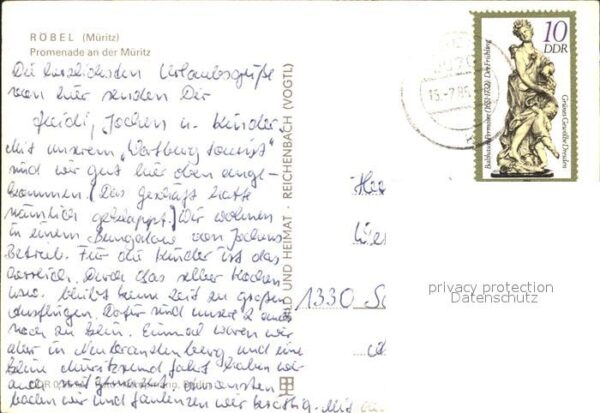 RÖBEL (Müritz)
Promenade an der Müritz
Die herzlichsten Urlaubsgrüße
von hier senden Dir
Heidi, Jochen u. Kinder.
Mit unserem „Wartburg Tourist"
sind wir gut hier oben ange-
kommen. (Das Geschäft hatte
nämlich geklappt.) Wir wohnen
in einem Bungalow von Jochens
Betrieb. Für die Kinder ist das
herrlich. Durch das selber kochen
usw. bleibt keine Zeit zu großen
Ausflügen. Dafür sind unsere 2 auch
noch zu klein. Einmal waren wir
aber in Neubrandenburg und eine
kleine Müritzrundfahrt haben wir
auch mitgemacht. Ansonsten
baden wir und faulenzen wir
BILD UND HEIMAT · REICHENBACH (VOGTL)
1330
10
DDR
Balthasar Permoser (1651-1732): Der Frühling
Grünes Gewölbe Dresden
privacy protection
Datenschutz